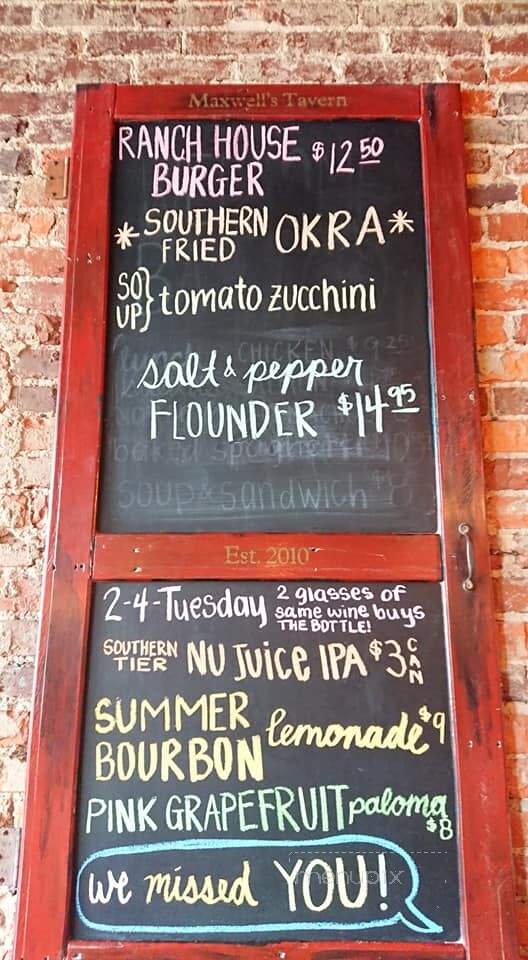 Maxwell's Tavern
RANCH HOUSE $12 50
BURGER
*SOUTHERN FRIED OKRA*
SOUP} tomato zucchini
CHICKEN $9 25
salt & pepper
FLOUNDER $14 95
baked spaghetti
soup & sandwich
Est. 2010
2-4-Tuesday 2 glasses of
same wine buys
THE BOTTLE!
SOUTHERN TIER NU JUICE IPA $3 CAN
SUMMER
BOURBON lemonade $9
PINK GRAPEFRUIT paloma $8
we missed YOU!
menupix